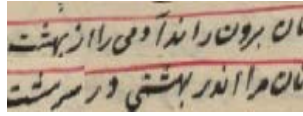 نان برون راند آدمی را از بهشت
نان مرا اندر بهشتی در سرشت